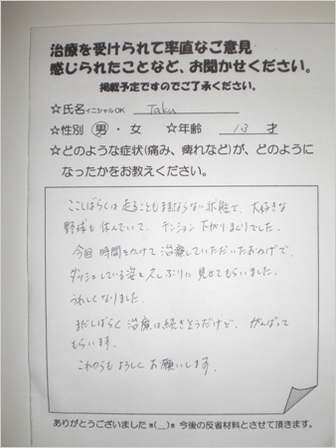 治療を受けられて率直なご意見
感じられたことなど、お聞かせください。
掲載予定ですのでご了承ください。
☆氏名イニシャルOK Taku
☆性別 男・女 ☆年齢 13 才
☆どのような症状(痛み、痺れなど)が、どのように
なったかをお教えください。
ここしばらくは走ることもままならない状態で、大好きな
野球も休んでいて、テンション下がりまくりでした。
今回時間をかけて治療していただいたおかげで、
ダッシュしている姿を久しぶりに見せてもらいました。
うれしくなりました。
まだしばらく治療は続きそうだけど、がんばって
もらいます。
これからもよろしくお願いします。
ありがとうございました m(__)m 今後の反省材料とさせて頂きます。